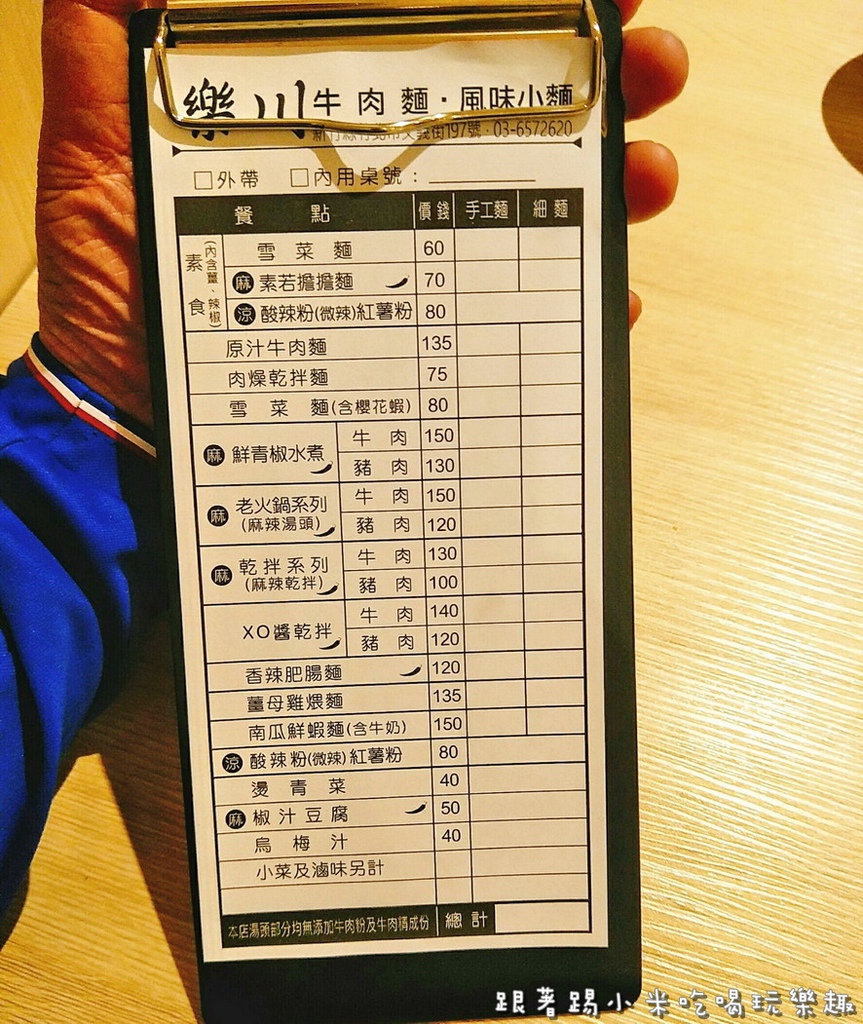 樂川牛肉麵·風味小麵
新竹縣竹北市文義街197號·03-6572620
□外帶 □內用桌號：
餐點 價錢 手工麵 細麵
素食(內含薑、辣椒)
雪菜麵 60
麻 素若擔擔麵 70
涼 酸辣粉(微辣)紅薯粉 80
原汁牛肉麵 135
肉燥乾拌麵 75
雪菜麵(含櫻花蝦) 80
麻 鮮青椒水煮 牛肉 150
豬肉 130
麻 老火鍋系列(麻辣湯頭) 牛肉 150
豬肉 120
麻 乾拌系列(麻辣乾拌) 牛肉 130
豬肉 100
XO醬乾拌 牛肉 140
豬肉 120
香辣肥腸麵 120
薑母雞煨麵 135
南瓜鮮蝦麵(含牛奶) 150
涼 酸辣粉(微辣)紅薯粉 80
燙青菜 40
麻 椒汁豆腐 50
烏梅汁 40
小菜及滷味另計
本店湯頭部分均無添加牛肉粉及牛肉精成份 總計
跟著踢小米吃喝玩樂趣